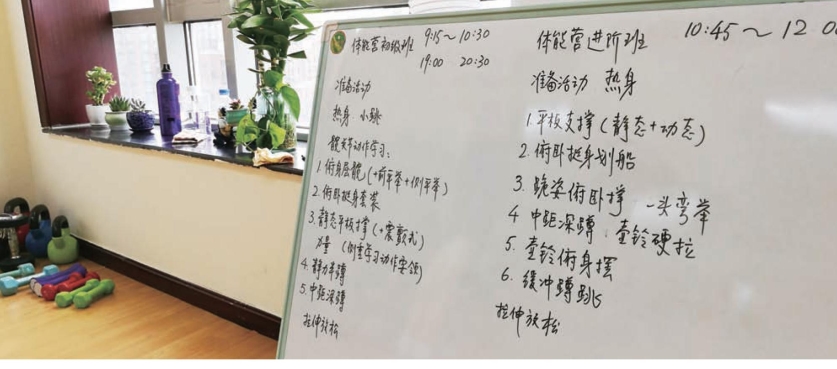 体能营初级班 9:15～10:30
19:00 20:30
准备活动
热身 小跳
髋关节动作学习:
1.俯身屈髋(+前平举+侧平举)
2.俯卧挺身套装
3.静态平板撑(+震颤式)
力量 (侧重学习动作要领)
4.静力半蹲
5.中距深蹲
拉伸放松
体能营进阶班 10:45～12
准备活动 热身
1.平板支撑(静态+动态)
2.俯卧挺身划船
3.跪姿俯卧撑 一头弯举
4 中距深蹲 壶铃硬拉
5.壶铃俯身摆
6.缓冲蹲跳
拉伸放松